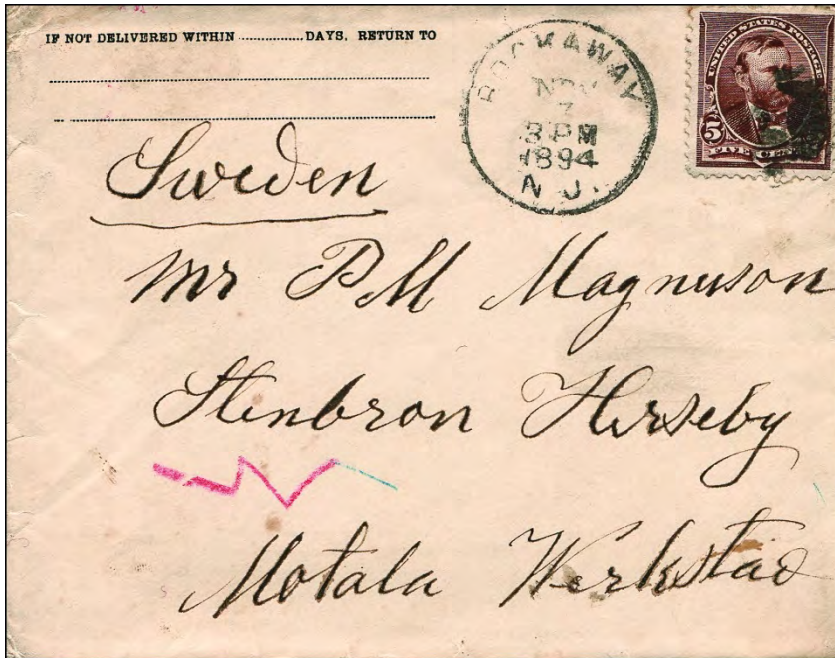 IF NOT DELIVERED WITHIN ............ DAYS, RETURN TO
ROCKAWAY
NOV
7
3 PM
1894
N.J.
UNITED STATES POSTAGE
5
FIVE
Sweden
Mr P M Magnuson
Stenbron Herseby
Motala Werkstad